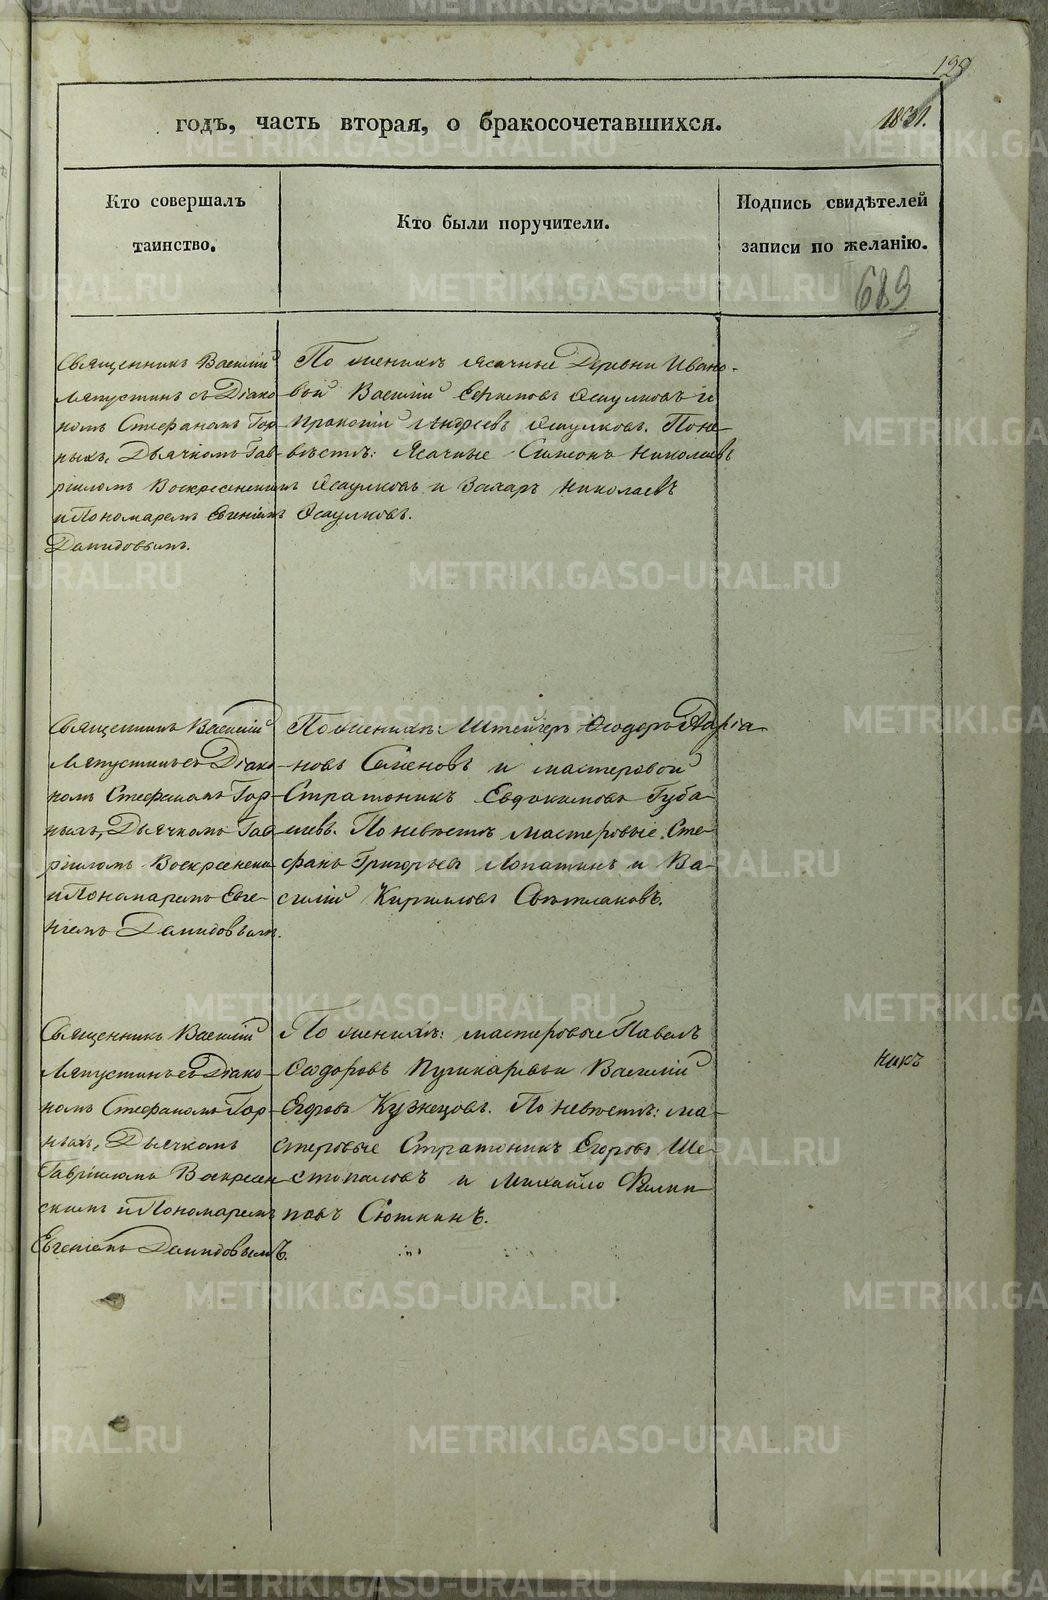 годъ, часть вторая, о бракосочетавшихся.
Кто совершалъ
таинство.
Кто были поручители.
Подпись свидѣтелей
записи по желанію.
689
Священникъ Василій
Ляпустинъ съ Діако-
номъ Стефаномъ Гор-
ныхъ, Дьячкомъ Гав-
ріиломъ Воскресенскимъ
и Пономаремъ Евгеніемъ
Демидовымъ.
По женихѣ ясачные Деревни Ивано-
вой Василій Осауловъ и
Андреевъ Осауловъ. По не-
вѣстѣ: Ясачные Симеонъ Николаевъ
Осауловъ и Захаръ Николаевъ
Осауловъ.
Священникъ Василій
Ляпустинъ съ Діако-
номъ Стефаномъ Гор-
ныхъ, Дьячкомъ Гав-
ріиломъ Воскресенски
и Пономаремъ Евге-
ніемъ Демидовымъ.
По женихѣ: Штейгеръ Ѳеодоръ Адріа-
новъ Семеновъ и мастеровой
Стратоникъ Евдокимовъ Губа-
По невѣстѣ мастеровые Сте-
фанъ Григорьевъ Лопатинъ и Ва-
силій Кирилловъ Свѣтлаковъ.
Священникъ Василій
Ляпустинъ съ Діако-
номъ Стефаномъ Гор-
ныхъ, Дьячкомъ
Гавріиломъ Воскресен
скимъ и Пономаремъ
Евгеніемъ Демидовымъ.
По женихѣ: мастеровые Павелъ
Ѳеодоровъ Пушкаревъ и Василій
Егоровъ Кузнецовъ. По невѣстѣ: ма-
стеровые Стратоникъ Егоровъ Ше-
стопаловъ и Михайло Филип
повъ Сюткинъ.
METRIKI.GASO-URAL.RU